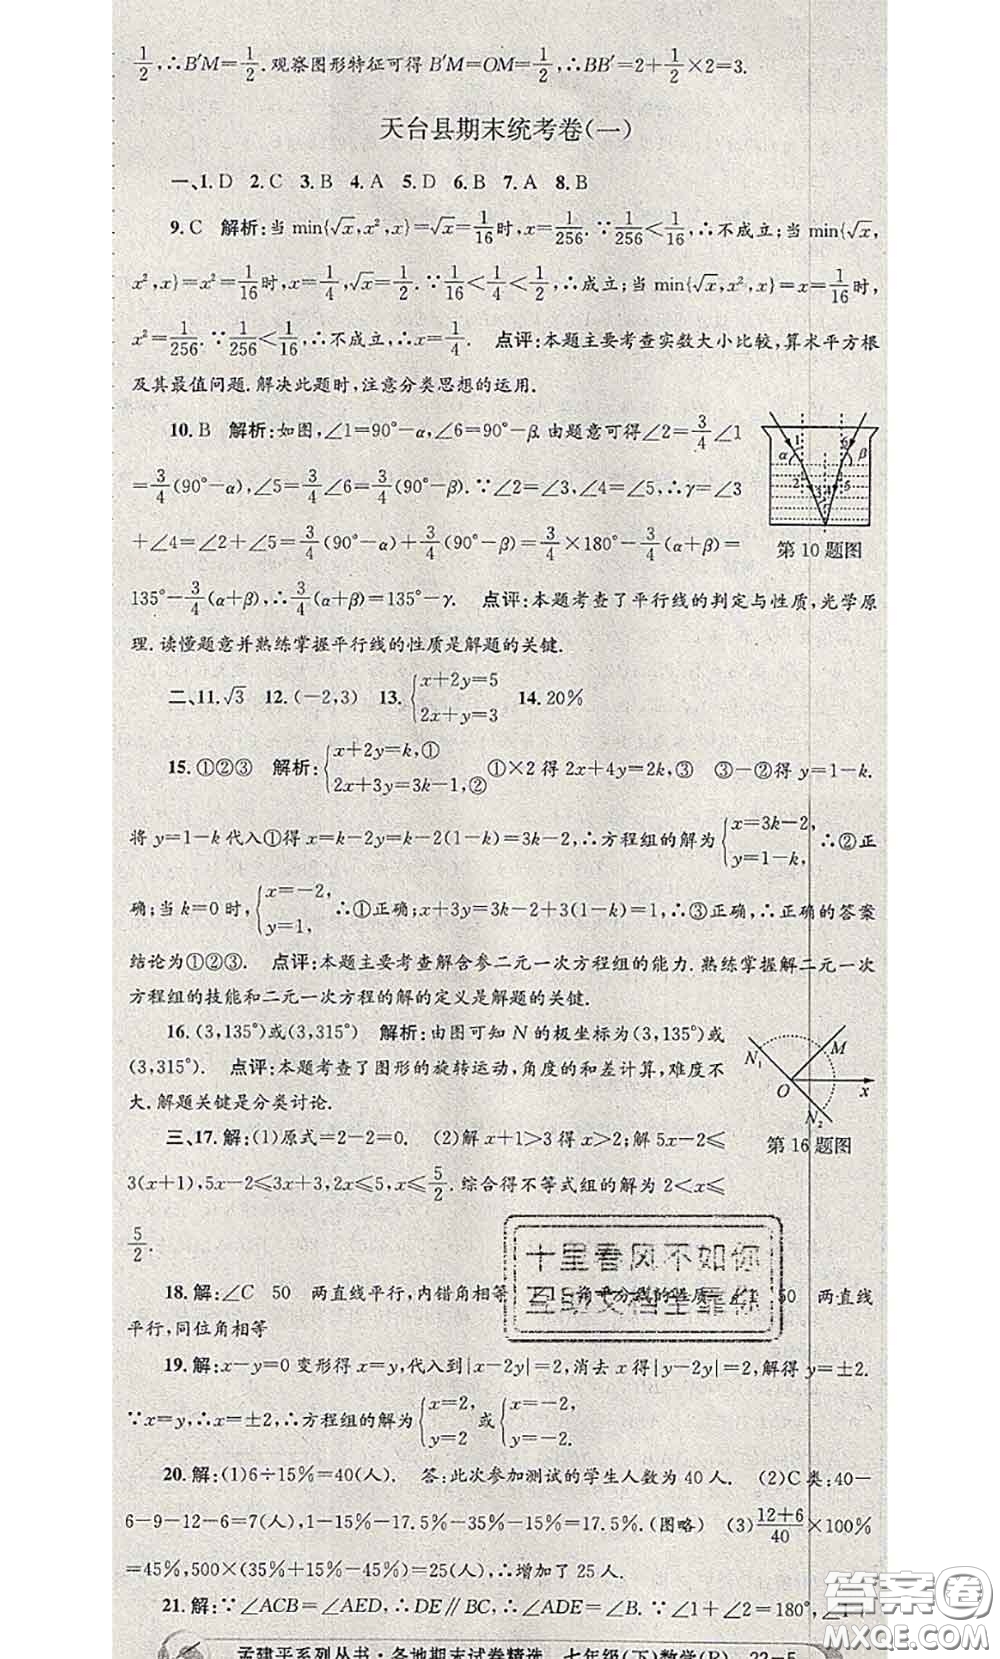 1/2,∴B′M=1/2.观察图形特征可得 B′M=OM=1/2,∴BB′=2+1/2×2=3.
天台县期末统考卷(一)
一、1.D 2.C 3.B 4.A 5.D 6.B 7.A 8.B
9.C 解析:当 min{√x,x²,x}=√x=1/16时,x=1/256.∵1/256<1/16,∴不成立;当 min{√x,
x²,x}=x²=1/16时,x=1/4,√x=1/2.∵1/16<1/4<1/2,∴成立;当 min{√x,x²,x}=x=1/16时,
x²=1/256.∵1/256<1/16,∴不成立,∴x=1/4. 点评:本题主要考查实数大小比较,算术平方根
及其最值问题.解决此题时,注意分类思想的运用.
10.B 解析:如图,∠1=90°-α,∠6=90°-β.由题意可得∠2=3/4∠1
=3/4(90°-α),∠5=3/4∠6=3/4(90°-β).∵∠2=∠3,∠4=∠5,∴γ=∠3
+∠4=∠2+∠5=3/4(90°-α)+3/4(90°-β)=3/4×180°-3/4(α+β)=
135°-3/4(α+β),∴3/4(α+β)=135°-γ. 点评:本题考查了平行线的判定与性质,光学原
理.读懂题意并熟练掌握平行线的性质是解题的关键.
1 6
α β
2 3 4 5
第10题图
二、11.√3 12.(-2,3) 13.{x+2y=5 2x+y=3 14.20%
15.①②③ 解析:{x+2y=k,① 2x+3y=3k-1,②①×2得 2x+4y=2k,③ ③-②得 y=1-k.
将 y=1-k代入①得 x=k-2y=k-2(1-k)=3k-2,∴方程组的解为{x=3k-2, y=1-k,∴②正
确;当 k=0时,{x=-2, y=1,∴①正确;x+3y=3k-2+3(1-k)=1,∴③正确,∴正确的答案
结论为①②③. 点评:本题主要考查解含参二元一次方程组的能力.熟练掌握解二元一次
方程组的技能和二元一次方程的解的定义是解题的关键.
16.(3,135°)或(3,315°) 解析:由图可知 N 的极坐标为(3,135°)或
(3,315°). 点评:本题考查了图形的旋转运动,角度的和差计算,难度不
大.解题关键是分类讨论.
N₁ M
O x
N₂
第16题图
三、17.解:(1)原式=2-2=0. (2)解 x+1>3得 x>2;解 5x-2≤
3(x+1),5x-2≤3x+3,2x≤5,x≤5/2.综合得不等式组的解为 2<x≤
5/2.
18.解:∠C 50 两直线平行,内错角相等 ∠1 角平分线的性质 ∠1 50 两直线
平行,同位角相等
十里春风不如你
互助文档全靠你
19.解:x-y=0变形得 x=y,代入到|x-2y|=2,消去 x得|y-2y|=2,解得 y=±2.
∵x=y,∴x=±2,∴方程组的解为{x=2, y=2或{x=-2, y=-2.
20.解:(1)6÷15%=40(人). 答:此次参加测试的学生人数为 40 人. (2)C类:40-
6-9-12-6=7(人),1-15%-17.5%-35%-15%=17.5%.(图略) (3)(12+6)/40×100%
=45%,500×(35%+15%-45%)=25(人),∴增加了 25 人.
21.解:∵∠ACB=∠AED,∴DE∥BC,∴∠ADE=∠B.∵∠1+∠2=180°,∠1+
孟建平系列丛书·各地期末试卷精选 七年级(下)数学(R) 22-5
答案圈
MXQE.COM